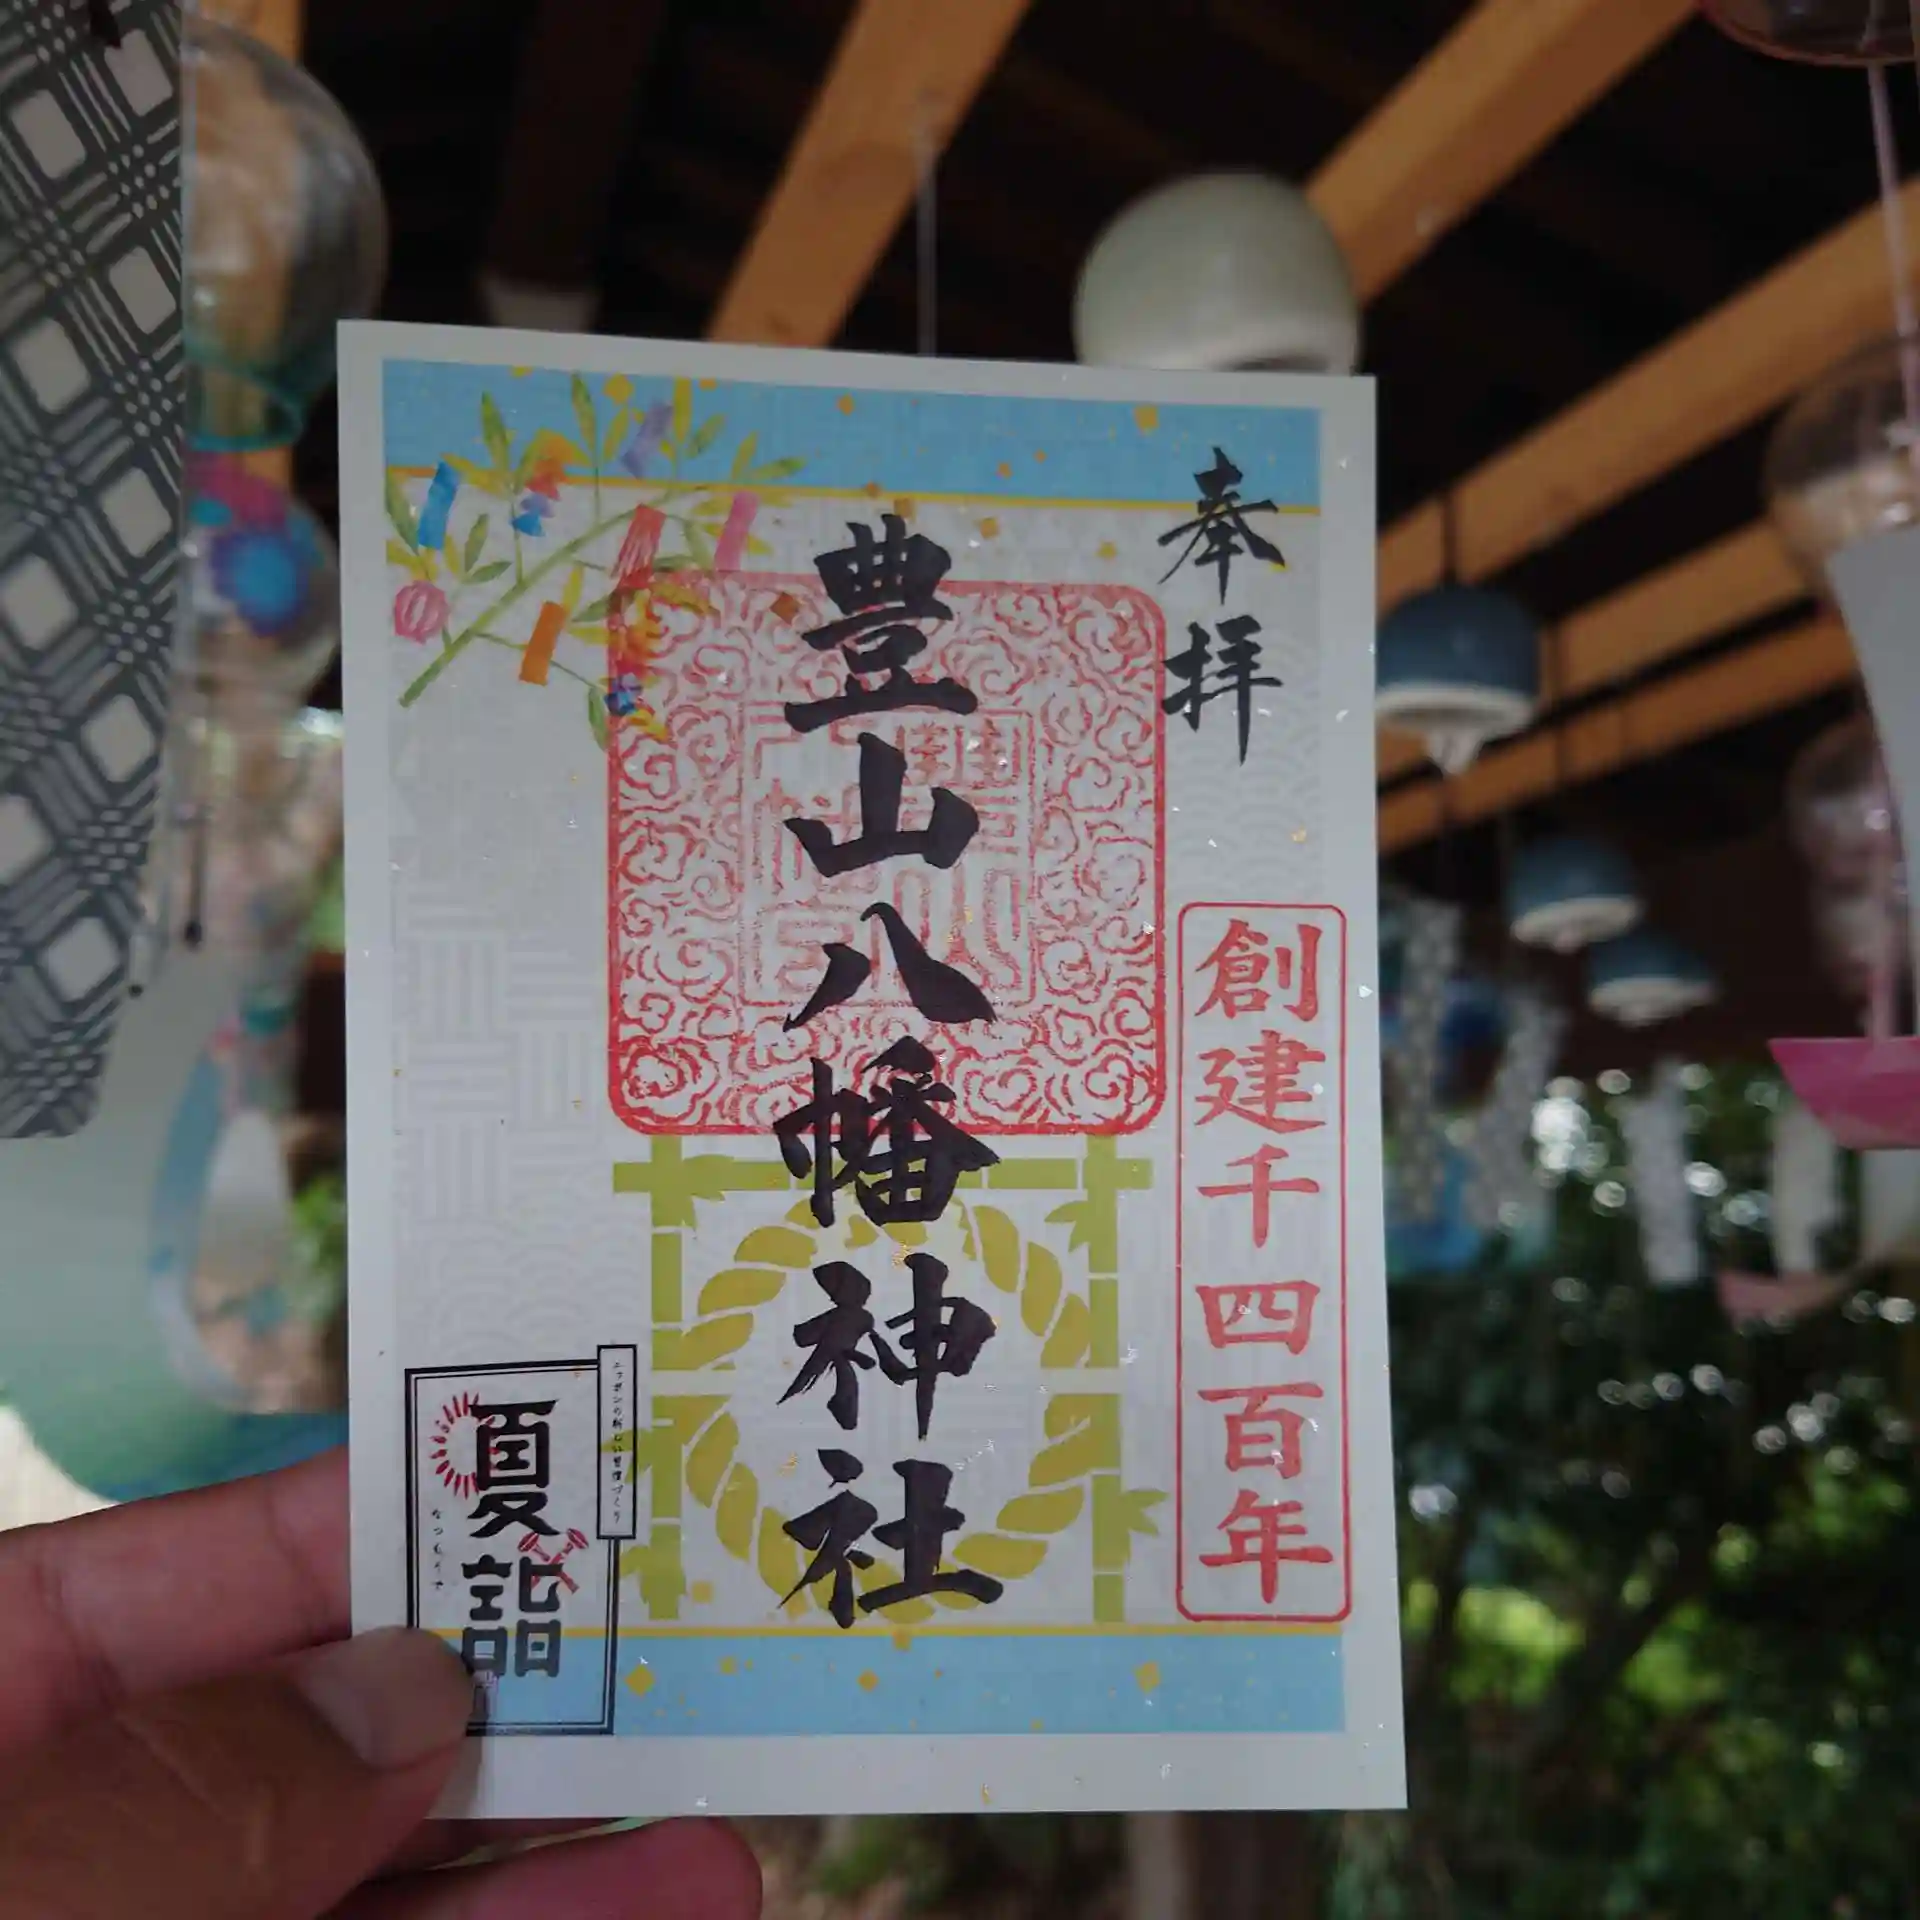 奉拝
創建千四百年
豊山八幡神社
ニッポンの新しい習慣づくり
夏詣
なつもうで